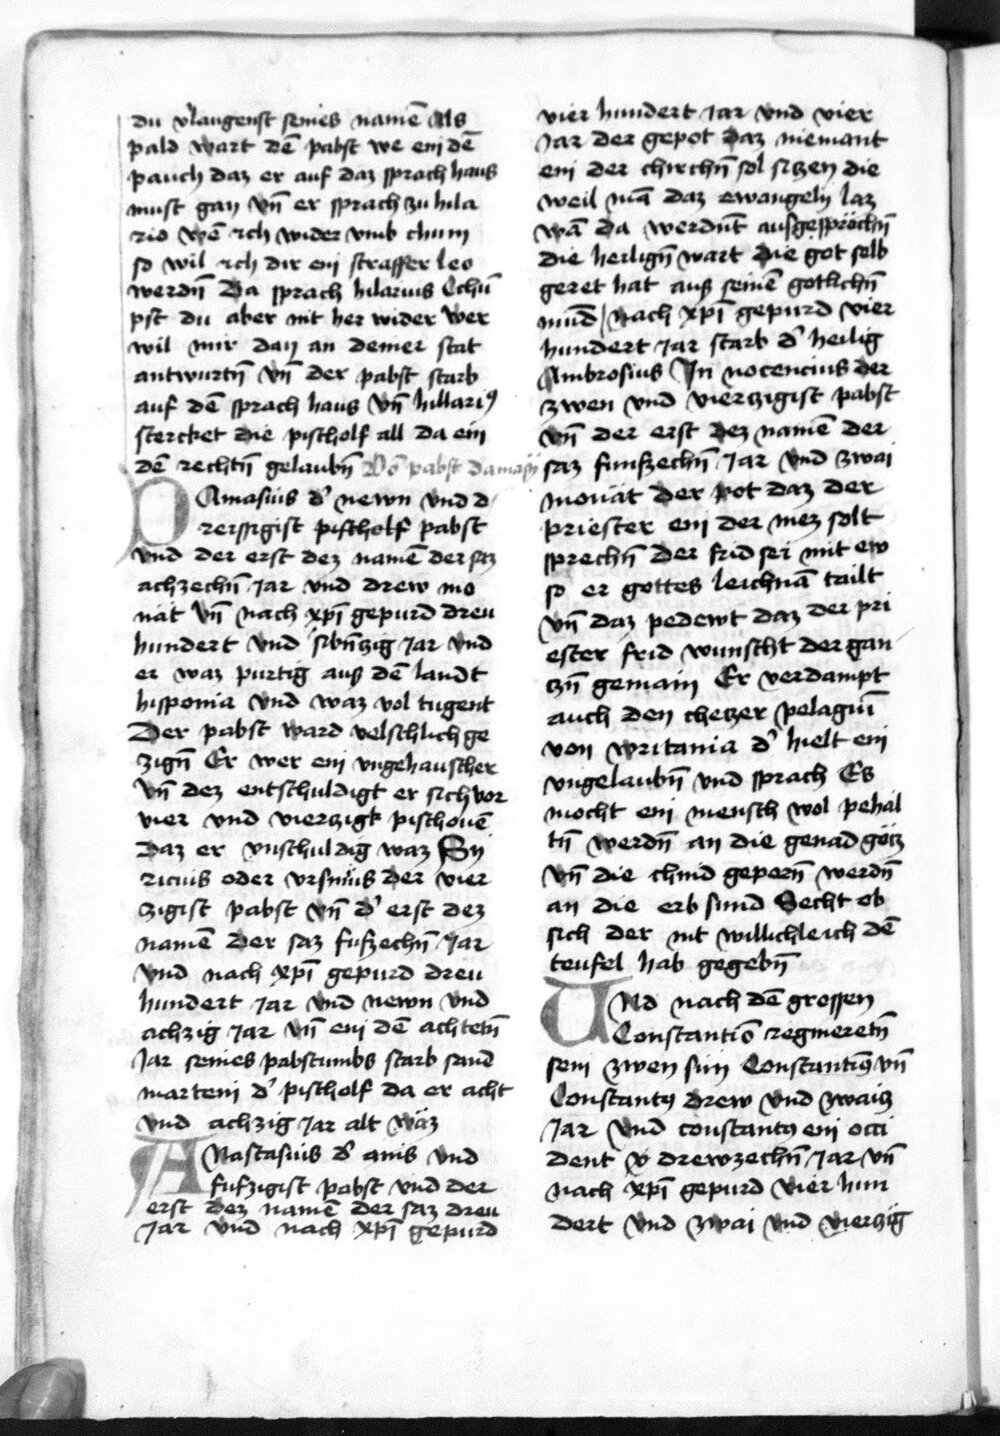 du vʼlaugenst seines namē Als
pald wart dē pabst we ein dē
pauch daz er auf daz sprach haus
must gan vn̄ er sprach zu hila
rio wē ich wider vmb chum
so wil ich dir ein straffer leo
werdn̄ Da sprach hilarius Chū
pst du aber nit her wider wer
wil mir dan an deiner stat
antwurtn̄ vn̄ der pabst starb
auf dē sprach haus vn̄ hillariꝰ
stercket die pischolf all da ein
dē rechtn̄ gelaubn̄ Vō pabst damasy
DAmasius dʼ newn vnd d
reissigist pischolf pabst
vnd der erst dez namē der saz
achzechn̄ Jar vnd drew mo
nat vn̄ nach xp̄i gepurd dreu
hundert vnd sibn̄zig Jar vnd
er waz purtig aus dē landt
hisponia vnd waz vol tugent
Der pabst ward velschlich ge
zign̄ Er wer ein vngehauscher
vn̄ dez entschuldigt er sich vor
vier vnd vierzigk pischouē
Daz er vnschuldig waz Sy
ricius oder vrsinius der vier
zigist pabst vn̄ dʼ erst dez
namē der saz fufzechn̄ Jar
vnd nach xp̄i gepurd dreu
hundert Jar vnd newn vnd
achzig Jar vn̄ ein dē achtetn̄
Jar seines pabstumbs starb sand
marteni dʼ pischolf da er acht
vnd achzig Jar alt waz
ANastasius dʼ ains vnd
fufzigist pabst vnd der
erst dez namē der saz dreu
Jar vnd nach xp̄i gepurd
vier hundert Jar vnd vier
Jar der gepot daz niemant
ein der chirchn̄ sol sitzen die
weil mā daz ewangely laz
wā da werdnt ausgesprochn̄
die heilign̄ wart die got selb
geret hat aus seinē gotlichn̄
mūd Nach xp̄i gepurd vier
hundert Jar starb dʼ heilig
Ambrosius In nocencius der
zwen vnd vierzigist pabst
vn̄ der erst dez namē der
saz funfzechn̄ Jar vnd zwai
monat der pot daz der
priester ein der mez solt
sprechn̄ der frid sei mit ew
so er gottes leichnā tailt
vn̄ daz pedewt daz der pri
ester frid wunscht der gan
tzn̄ gemain Er verdampt
auch den chetzer pelagiū
von writania dʼ hielt ein
vngelaubn̄ vnd sprach Es
mocht ein mensch wol pehal
tn̄ werdn̄ an die genad gotz
vn̄ die chind geporn̄ werdn̄
an die erb sund Secht ob
sich der nit willichleich dē
teufel hab gegebn̄
VNd nach dē grossen
Constantiō regnieretn̄
sein zwen sun Constantiꝰ vn̄
Constantꝰ drew vnd zwaiz
Jar vnd constantꝰ ein occi
dent v drewzechn̄ Jar vn̄
nach xp̄i gepurd vier hun
dert vnd zwai vnd vierzig